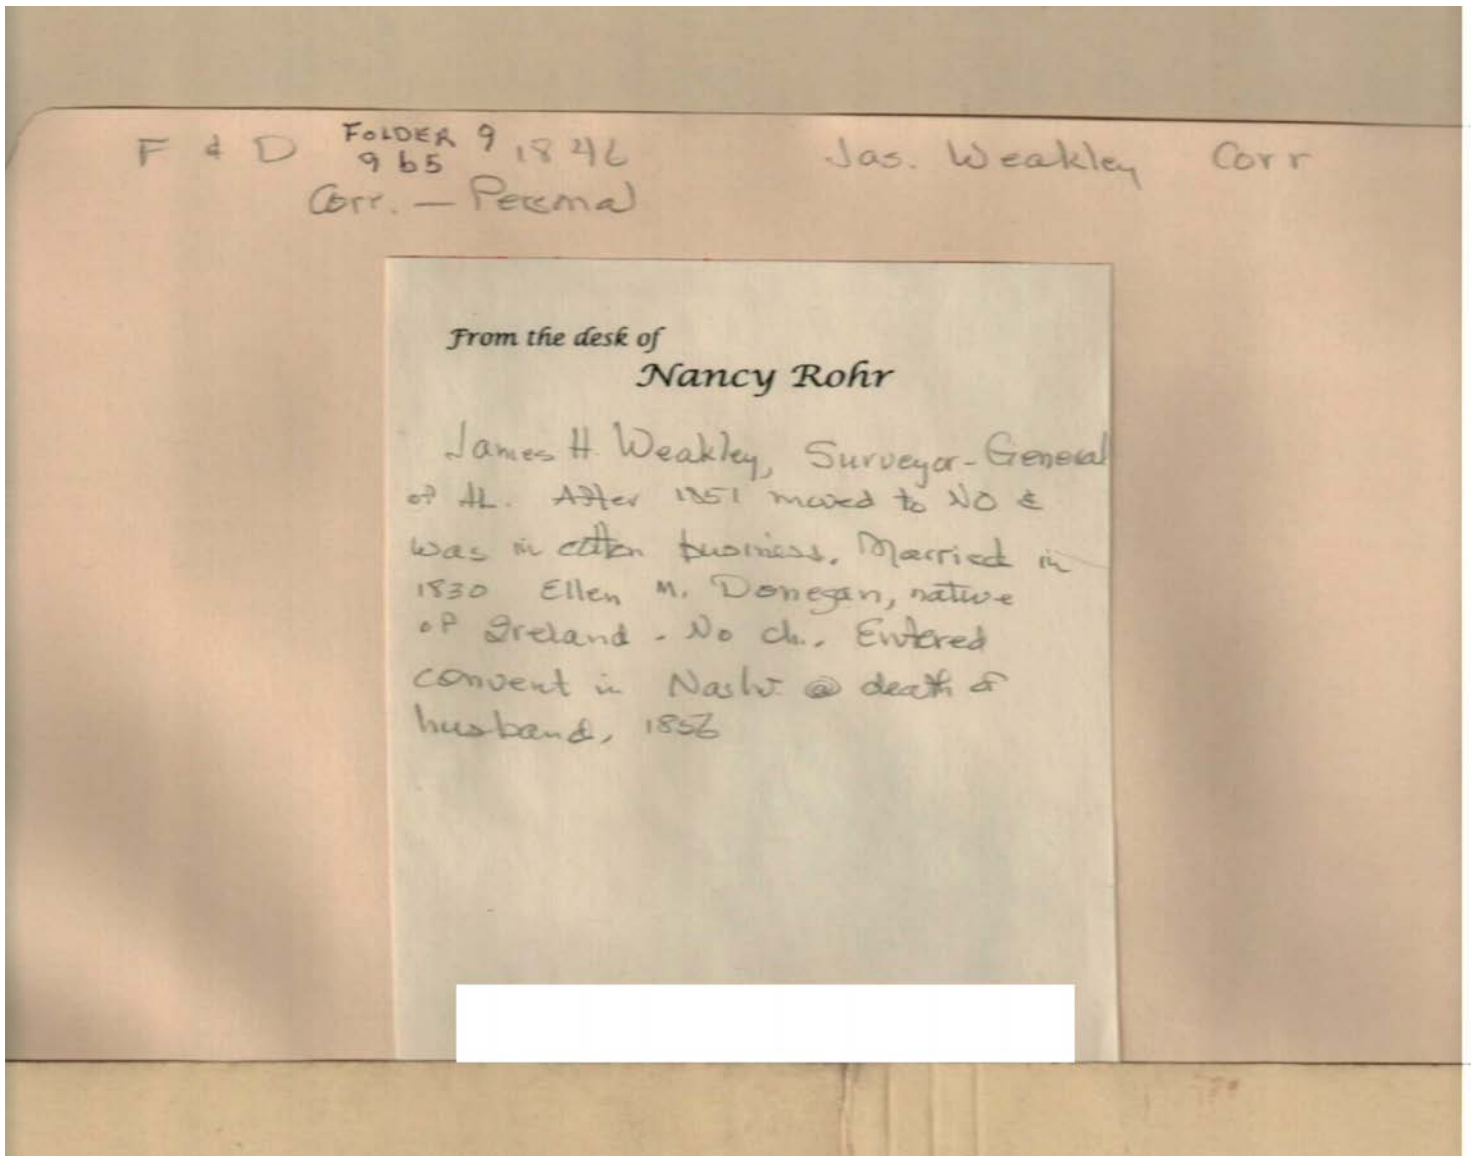 F & D FOLDER 9 1846 Jas. Weakley Corr
9 b5
Corr. — Personal
From the desk of
Nancy Rohr
James H. Weakley, Surveyor-General
of AL. After 1851 moved to NO &
was in cotton business. Married in
1830 Ellen M. Donegan, native
of Ireland. No ch. Entered
convent in Nashv @ death of
husband, 1856